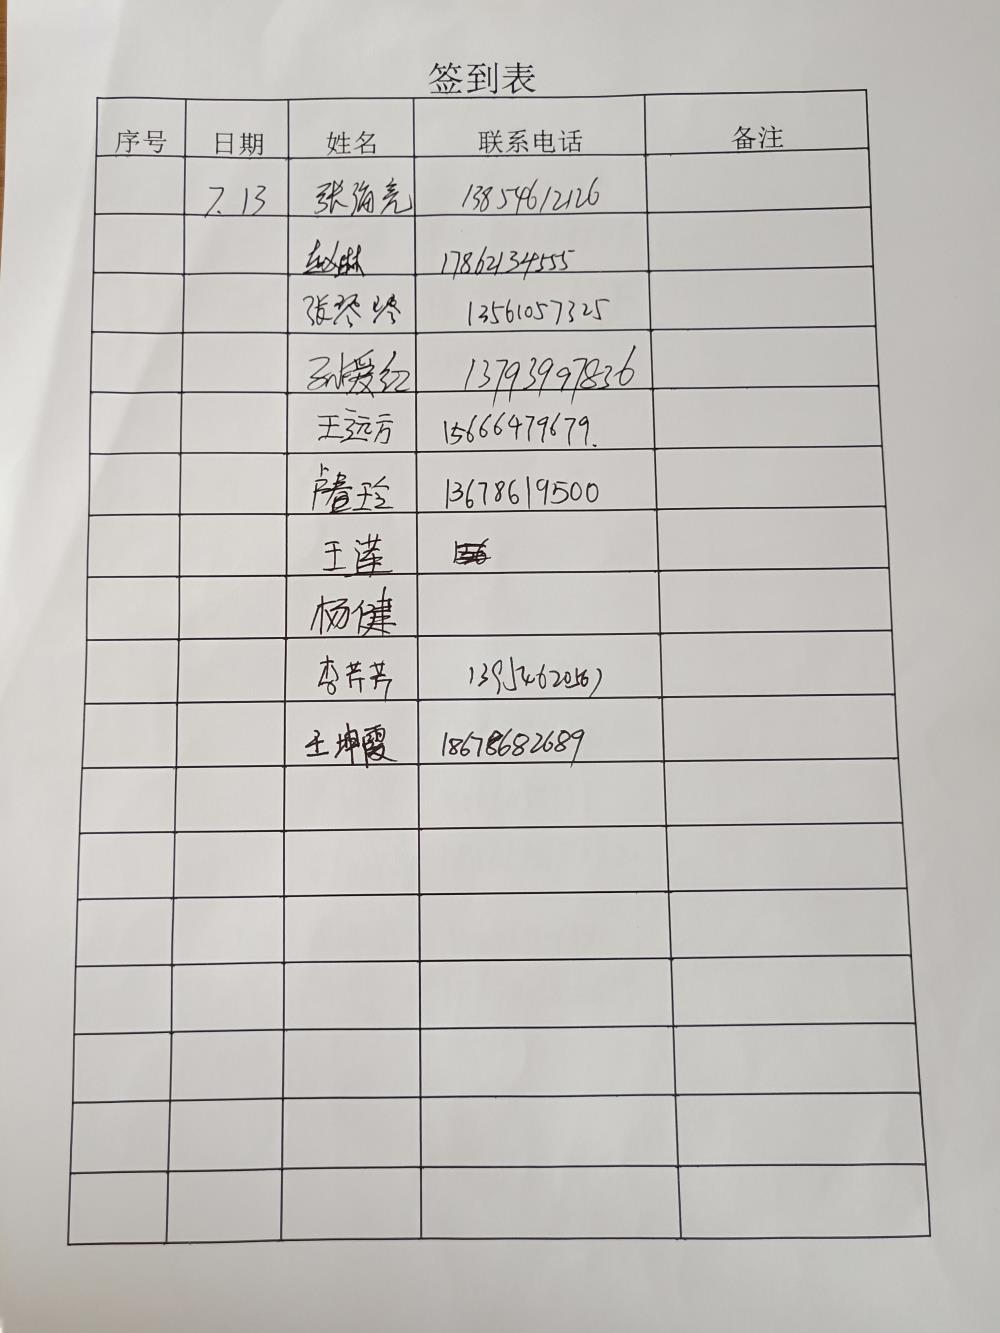 签到表
序号 日期 姓名 联系电话 备注
7.13 张海亮 13854612126
赵琳 17862134555
张琴琴 13561057325
孙爱红 13793997836
王远方 15666479679.
卢春玲 13678619500
王莲
杨健
李芹芹 13954620567
王坤霞 18678682689